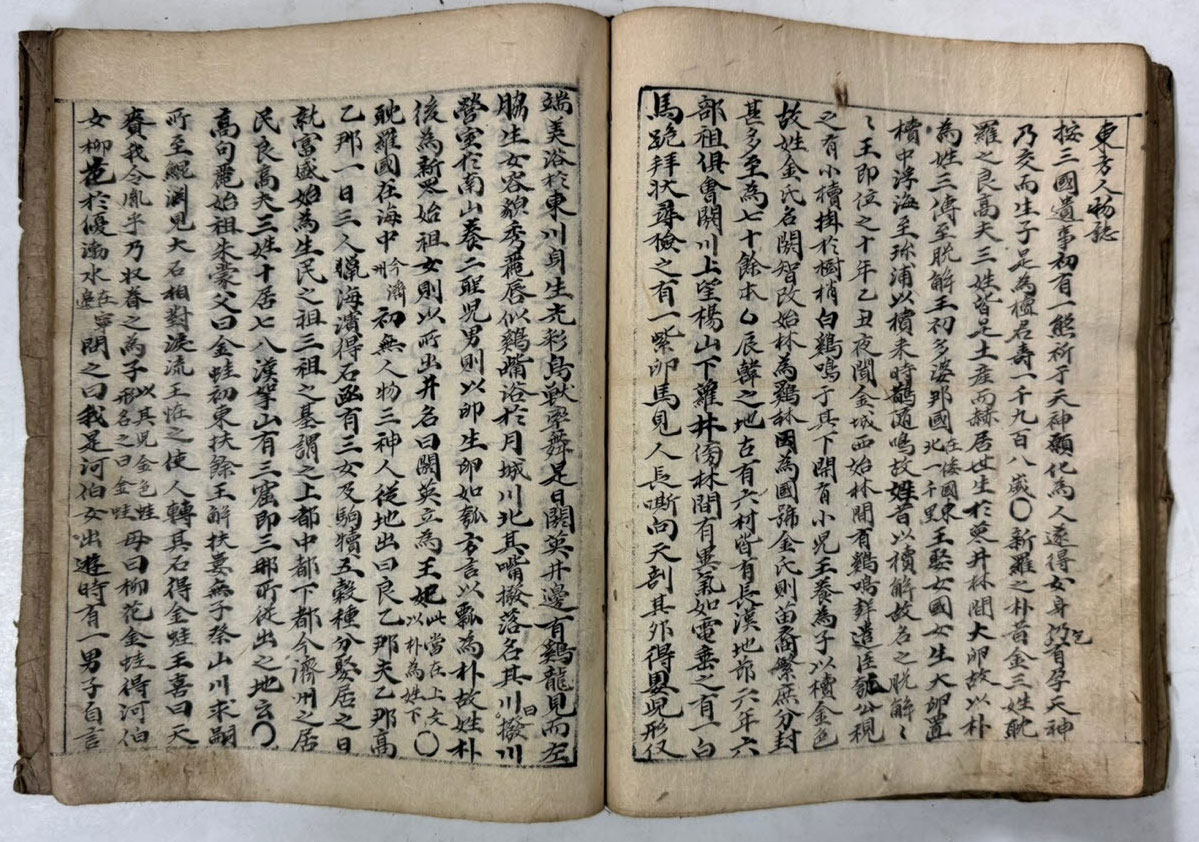 東方人物誌
按三國遺事初有一熊祈于天神願化為人遂得女身仍有孕天神
乃交而生子是為檀君壽一千九百八歲〇新羅之朴昔金三姓耽
羅之良高夫三姓皆是土産而赫居世生於蘿井林間大卵故以朴
為姓三傳至脫解王初多婆那國在倭國東北一千里王娶女國女生大卵置
櫝中浮海至珎浦以櫝來時鵲隨鳴故姓昔以櫝解故名之脫解〻
〻王即位之十年乙丑夜聞金城西始林間有鷄鳴詳遣臣瓠公視
之有小櫝掛於樹梢白鷄鳴于其下開有小児王養為子以櫝金色
故姓金氏名閼智改始林為鷄林因為國號金氏則苗裔繁庶分封
甚多至為七十餘本〇辰韓之地古有六村皆有長漢地節六年六
部祖俱會閼川上望楊山下蘿井傍林間有異氣如電垂之有一白
馬跪拜狀尋檢之有一紫卵馬見人長嘶向天剖其卵得嬰児形仅
端美浴於東川身生光彩鳥獸率舞是日閼英井邊有鷄龍見而左
脇生女容貌秀麗唇似鷄嘴浴於月城川北其嘴撥落名其川曰撥川
營室於南山養二聖児男則以卵生卵如瓠方言以瓢為朴故姓朴
後為新羅始祖女則以所出井名曰閼英立為王妃此當在上文以朴為姓下〇
耽羅國在海中今濟州初無人物三神人從地出曰良乙那夫乙那高
乙那一日三人獵海濱得石函有三女及駒犢五穀種分娶居之日
就富盛始為生民之祖三祖之基謂之上都中都下都今濟州之居
民良高夫三姓十居七八漢拏山有三窟即三那所從出之地云〇
高句麗始祖朱蒙父曰金蛙初東扶餘王解扶婁無子祭山川求嗣
所至鯤淵見大石相對淚流王恠之使人轉其石得金蛙王喜曰天
賚我令胤乎乃収養之為子以其児金色蛙形名之曰金蛙母曰柳花金蛙得河伯
女柳花於優渤水在寧邊問之曰我是河伯女出遊時有一男子自言